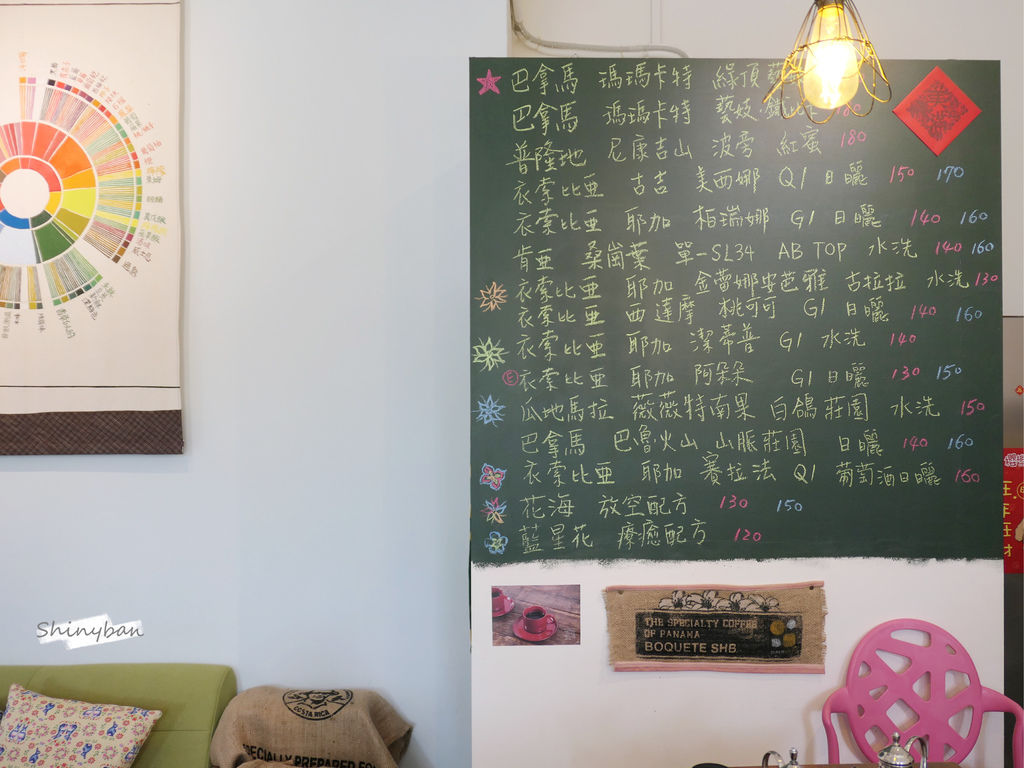 巴拿馬 瑪瑪卡特 綠頂
巴拿馬 瑪瑪卡特 藝妓
普隆地 尼康吉山 波旁 紅蜜 180
衣索比亞 古吉 美西娜 Q1 日曬 150 170
衣索比亞 耶加 柏瑞娜 G1 日曬 140 160
肯亞 桑崗葉 單一SL34 AB TOP 水洗 140 160
衣索比亞 耶加 金蕾娜安芭雅 古拉拉 水洗 130
衣索比亞 西達摩 桃可可 G1 日曬 140 160
衣索比亞 耶加 潔蒂普 G1 水洗 140
E 衣索比亞 耶加 阿朵朵 G1 日曬 130 150
瓜地馬拉 薇薇特南果 白鴿莊園 水洗 150
巴拿馬 巴魯火山 山脈莊園 日曬 140 160
衣索比亞 耶加 賽拉法 Q1 葡萄酒日曬 160
花海 放空配方 130 150
藍星花 療癒配方 120
THE SPECIALTY COFFEE
OF PANAMA
BOQUETE SHB
Shinyban
COSTA RICA
SPECIALLY PREPARED FO